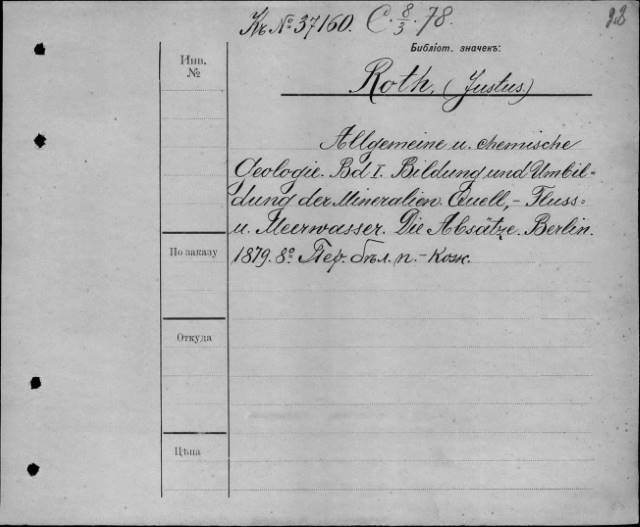 Къ № 37160. C. 8/3. 78.
Библіот. значекъ:
Инв.
№
Roth, (Justus)
Allgemeine u. chemische
Geologie. Bd I. Bildung und Umbil-
dung der Mineralien. Quell,- Fluss-
u. Meerwasser. Die Absätze. Berlin.
1879. 8º. Пер. бѣл. п.-кож.
По заказу
Откуда
Цѣна